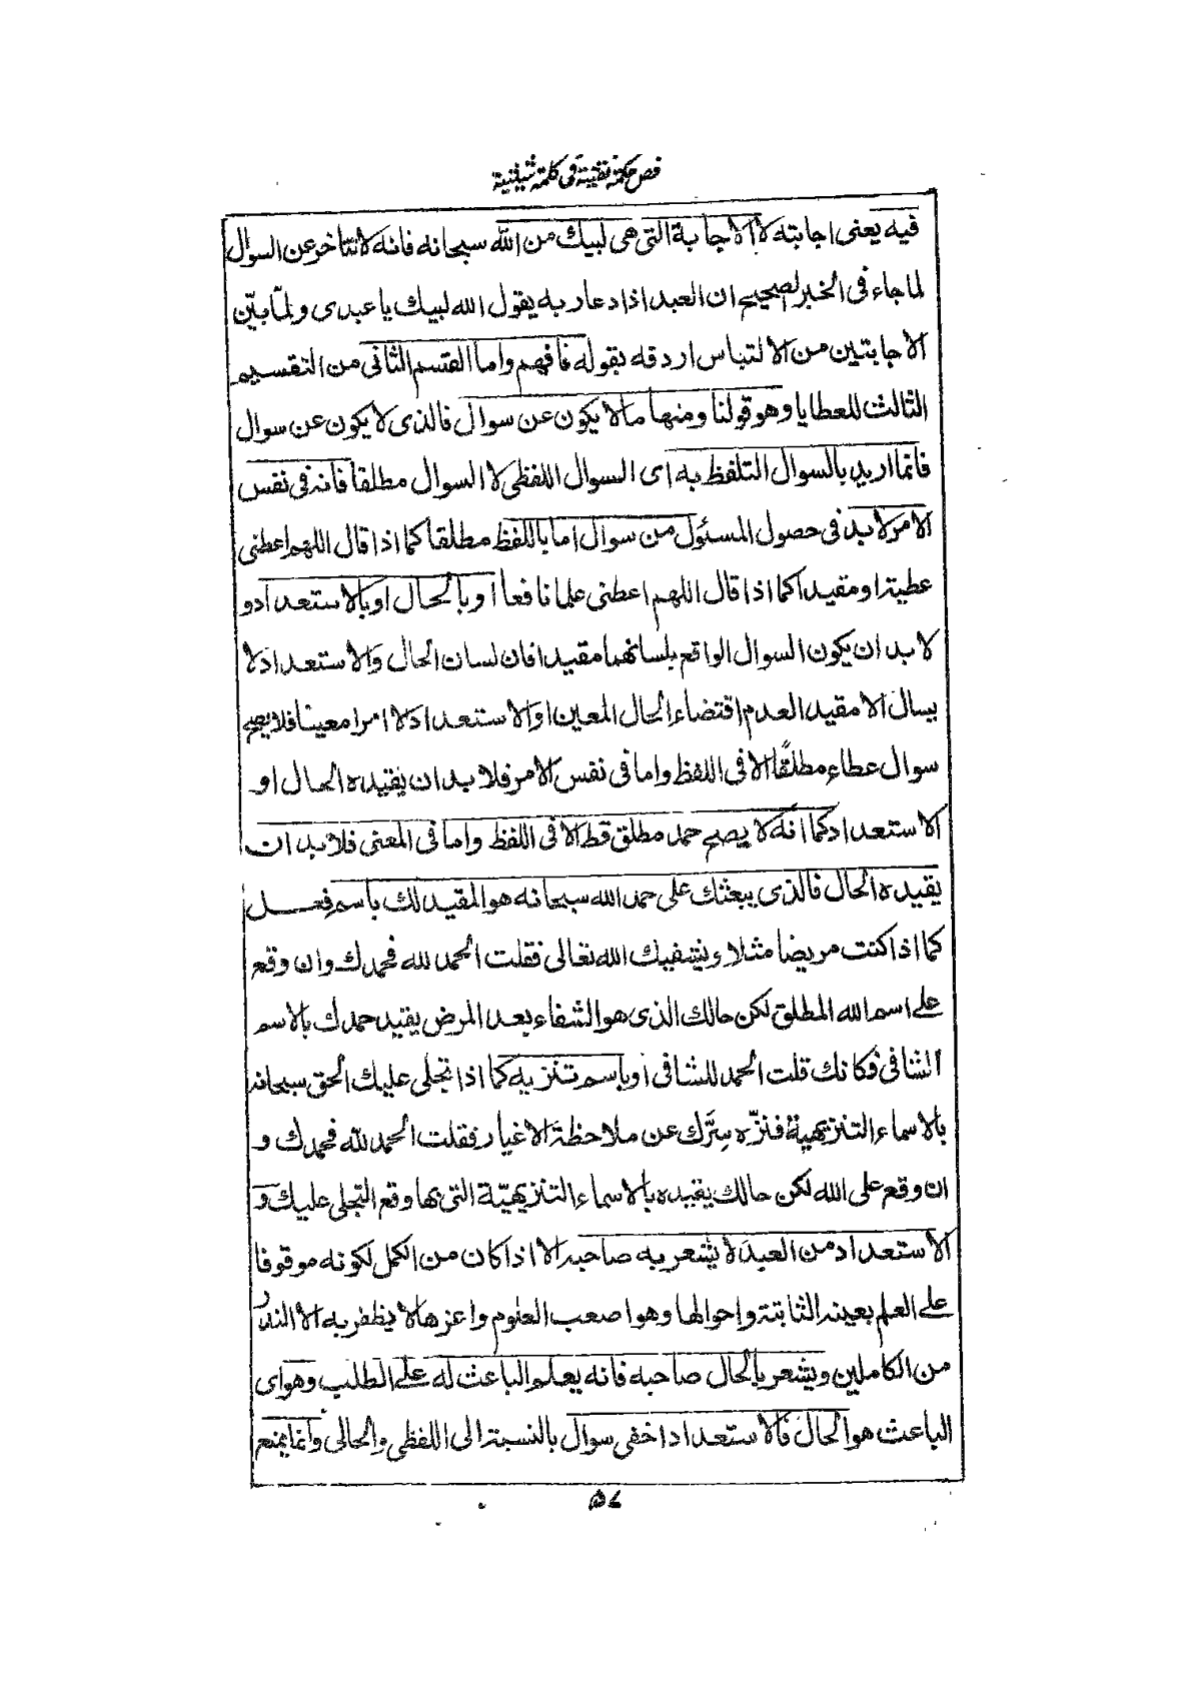 فص حكمة نفثية فى كلمة شيثية
فيه يعنى اجابته لا الاجابة التى هى لبيك من الله سبحانه فانه لا تتاخر عن السوال
لما جاء فى الخبر الصحيح ان العبد اذا دعا ربه يقول الله لبيك يا عبدى ولمّا بيّن
الاجابتين من الالتباس اردفه بقوله فافهم واما القسم الثانى من التقسيم
الثالث للعطايا وهو قولنا ومنها ما لا يكون عن سوال فالذى لا يكون عن سوال
فانما اريد بالسوال التلفظ به اى السوال اللفظى لا السوال مطلقا فانه فى نفس
الامر لا بد فى حصول المسئول من سوال اما باللفظ مطلقا كما اذا قال اللهم اعطنى
عطية او مقيدا كما اذا قال اللهم اعطنى علما نافعا او بالحال او بالاستعداد و
لا بد ان يكون السوال الواقع بلسانهما مقيدا فان لسان الحال والاستعداد لا
يسال الا مقيد العدم اقتضاء الحال المعين او الاستعداد لا امرا معينا فلا يصح
سوال عطاء مطلقًا الا فى اللفظ واما فى نفس الامر فلا بد ان يقيده الحال او
الاستعداد كما انه لا يصح حمد مطلق قط الا فى اللفظ واما فى المعنى فلا بد ان
يقيده الحال فالذى يبعثك على حمد الله سبحانه هو المقيد لك باسم فعل
كما اذا كنت مريضا مثلا ويشفيك الله تعالى فقلت الحمد لله فحمدك وان وقع
على اسم الله المطلق لكن حالك الذى هو الشفاء بعد المرض يقيد حمدك بالاسم
الشافى فكانك قلت الحمد للشافى او باسم تنزيه كما اذا تجلى عليك الحق سبحانه
بالاسماء التنزيهية فنزّه سِرَّك عن ملاحظة الاغيار فقلت الحمد لله فحمدك و
ان وقع على الله لكن حالك يقيده بالاسماء التنزيهيّة التى بها وقع التجلى عليك و
الاستعداد من العبد لا يشعر به صاحبه الا اذا كان من الكمل لكونه موقوفا
على العلم بعينه الثابتة واحوالها وهو اصعب العلوم واعزها لا يظفر به الا الندُر
من الكاملين ويشعر بالحال صاحبه فانه يعلم الباعث له على الطلب وهو اى
الباعث هو الحال فالاستعداد اخفى سوال بالنسبة الى اللفظى والحالى وانما يمنع